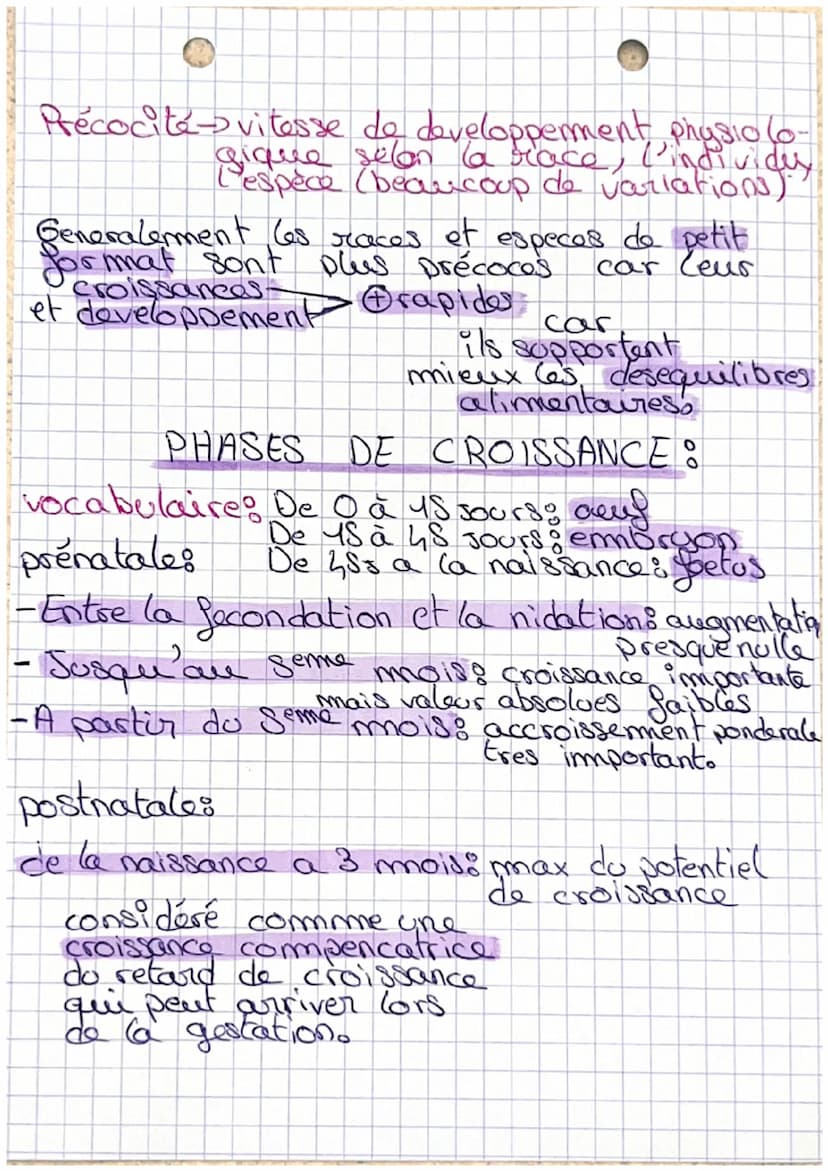 Précocité → vitesse de developpement physiolo-
gique selon la race, l'individu,
l'espèce (beaucoup de variations)
Generalement les races et especes de petit
format sont plus précoces car leur
croissances
et developpement ⊕ rapides
car
ils supportent
mieux les desequilibres
alimentaires.
PHASES DE CROISSANCE :
vocabulaire: De 0 à 15 jours: œuf
De 15 à 45 jours: embryon
prénatale: De 45j a la naissance: foetus
- Entre la fecondation et la nidation: augmentatio
presque nulle
- Jusqu'au 5eme mois: croissance importante
mais valeur absolues faibles
- A partir du 5eme mois: accroissement ponderale
tres important.
postnatale:
de la naissance a 3 mois: max du potentiel
de croissance
considéré comme une
croissance compencatrice
du retard de croissance
qui peut arriver lors
de la gestation.